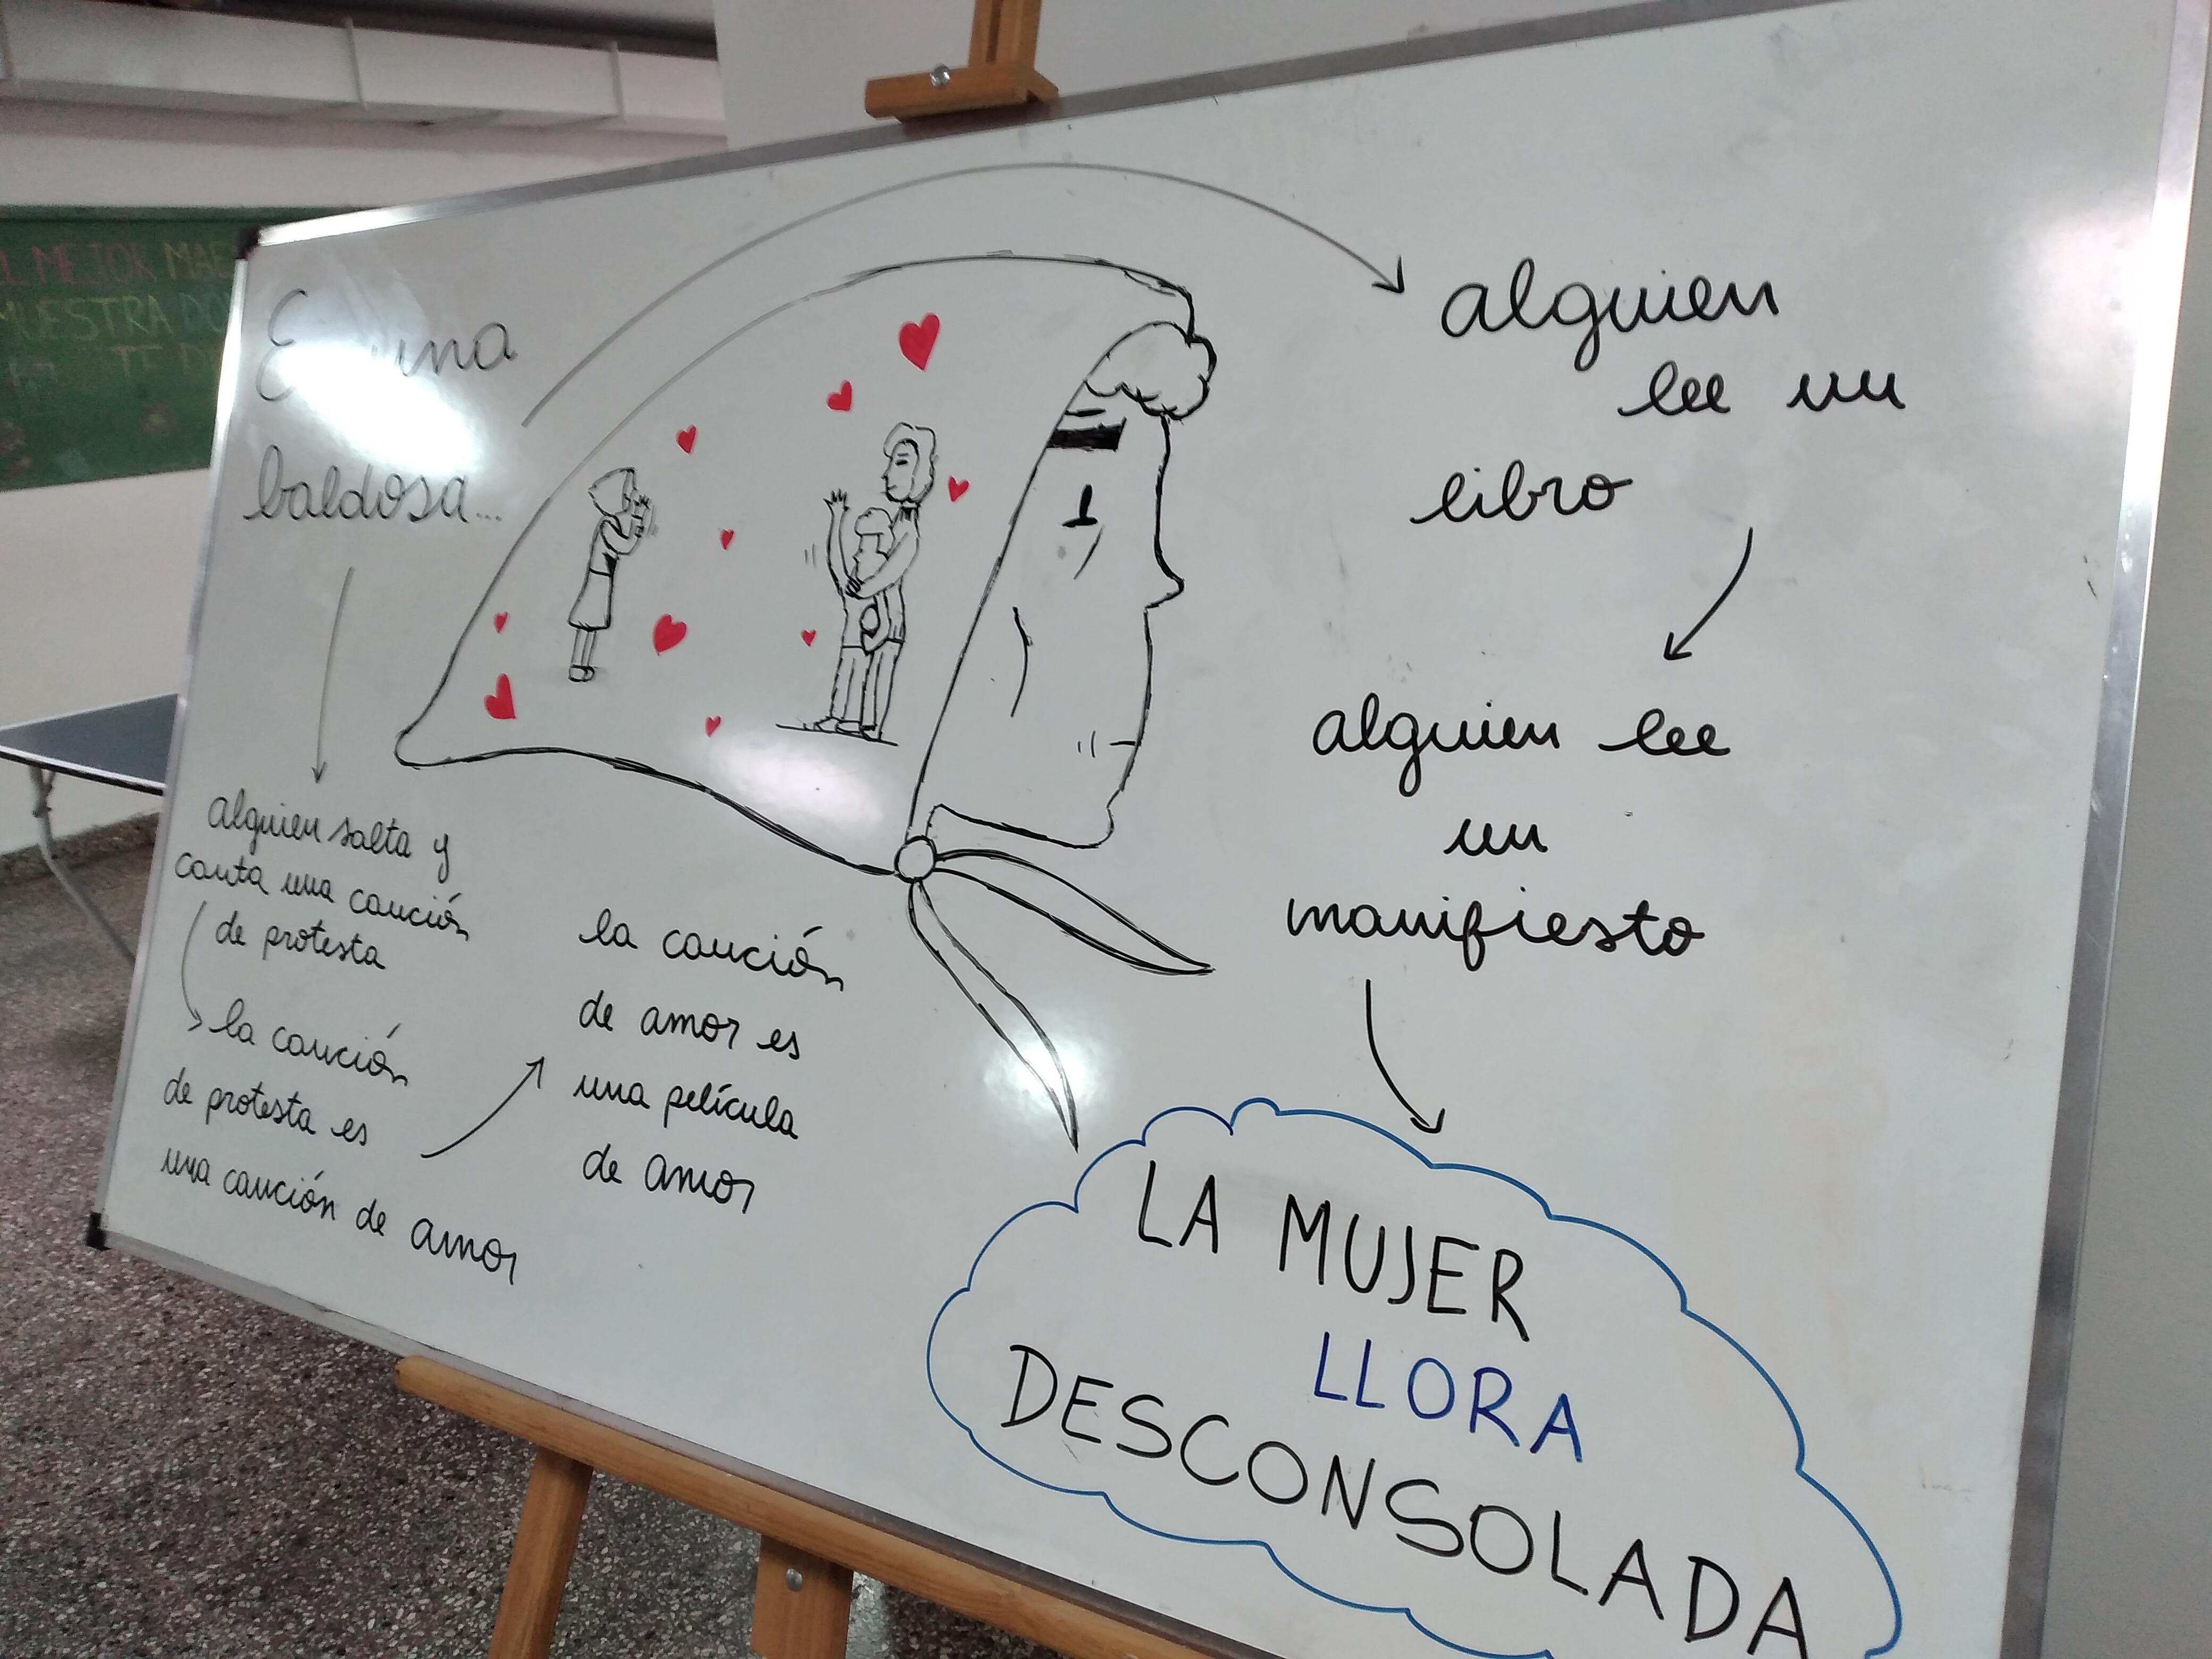 EL MEJOR MAE
MUESTRA DO
TE D
En una
baldosa...
alguien salta y
canta una canción
de protesta
la canción
de protesta es
una canción de amor
la canción
de amor es
una película
de amor
alguien
lee un
libro
alguien lee
un
manifiesto
LA MUJER
LLORA
DESCONSOLADA